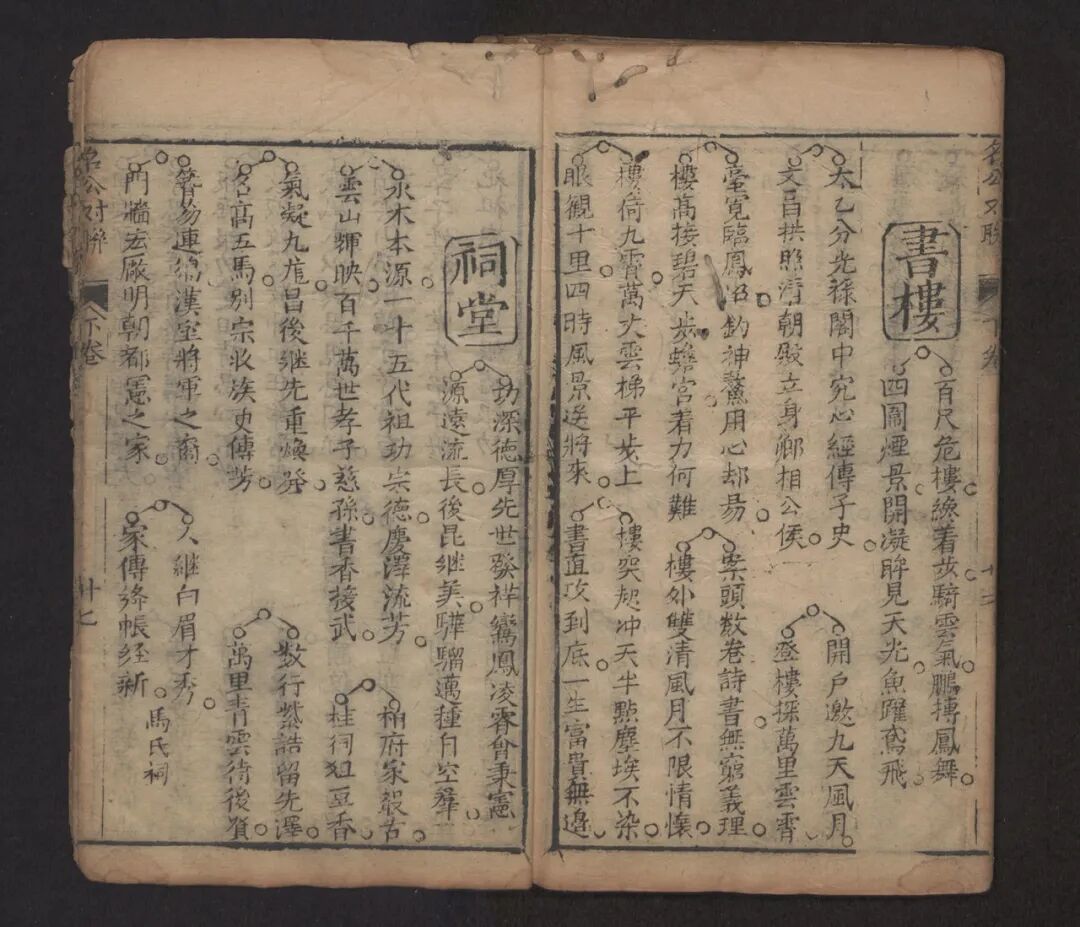 書樓
百尺危樓纔着步騎雲氣鵬摶鳳舞
四圍煙景開凝眸見天光魚躍鳶飛
太乙分光祿閣中究心經傳子史
文昌拱照清朝殿立身卿相公侯
開戶邀九天風月
登樓採萬里雲霄
毫寬臨鳳沼釣神鰲用心却易
樓高接碧天步蟾宮着力何難
案頭数卷詩書無窮義理
樓外雙清風月不限情懷
樓倚九霄萬丈雲梯平步上
眼觀十里四時風景送將來
樓突起冲天半點塵埃不染
書直攻到底一生富貴無邊
祠堂
功深德厚先世發祥鸞鳳凌霄曾秉憲
源遠流長後昆継美驊騮邁種自空羣
水木本源一十五代祖功宗德慶澤流芳
雲山輝映百千萬世孝子慈孫書香接武
柏府家聲古
桂祠俎豆香
氣凝九昌後継先重煥發
名高五馬別宗收族史傳芳
数行紫誥留先澤
萬里青雲待後賢
簪笏連綿漢室將軍之裔
門牆宏厰明朝都憲之家
人継白眉才秀
家傳絳帳経新
馬氏祠
名公对聯 下卷 廿七